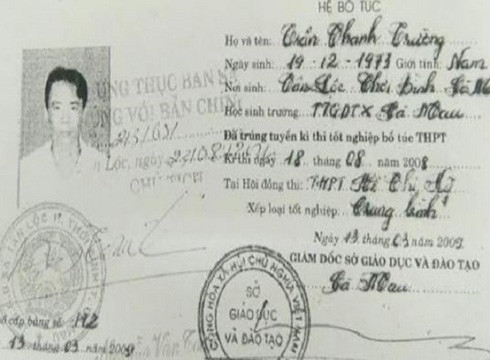 HỆ BỔ TÚC
Họ và tên: Trần Thanh Trường
Ngày sinh: 19-12-1973 Giới tính: Nam
Nơi sinh: Tân Lộc, Thới Bình, Cà M
Học sinh trường: TTGDTX Cà Mau
Đã trúng tuyển kì thi tốt nghiệp bổ túc THPT
Kì thi ngày 18 tháng 08 năm 2008
Tại Hội đồng thi: THPT
Xếp loại tốt nghiệp: Trung bình
Ngày 13 tháng 03 năm 2009
GIÁM ĐỐC SỞ GIÁO DỤC VÀ ĐÀO TẠO
Cà Mau
NG THỰC BẢN SA
NG VỚI BẢN CHÍNH
Lộc, ngày
CHỦ TỊCH
CỘNG HÒA XÃ HỘI CHỦ NGHĨA VIỆT NAM
SỞ
GIÁO DỤC
VÀ ĐÀO TẠO
số cấp bằng số: 142
13 tháng 03 năm 2009